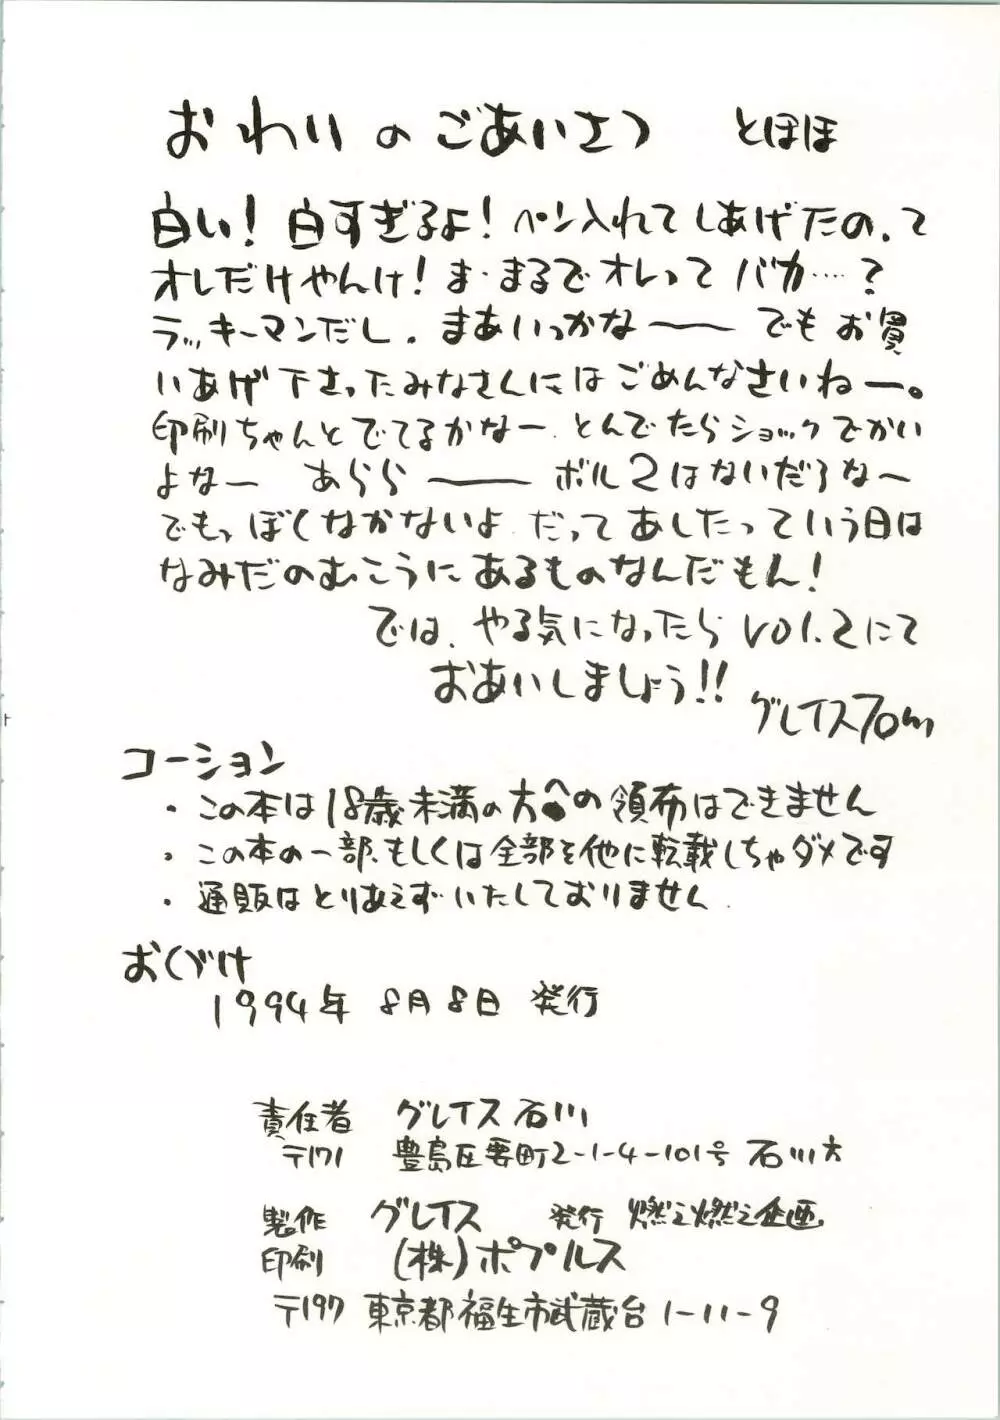 おわりのごあいさつ　とほほ
白い！白すぎるよ！ペン入れてしあげたの、て
オレだけやんけ！ま・まるでオレってバカ……？
ラッキーマンだし。まあいっかなー でもお買
いあげ下さったみなさんにはごめんなさいねー。
印刷ちゃんとでてるかなー、とんでたらショックでかい
よなー　あらら ー ボル2はないだろな〜
でもっぼくなかないよ だってあしたっていう日は
なみだのむこうにあるものなんだもん！
では、やる気になったらVol.2にて
おあいしましょう!!
グレイスTom
コーション
・この本は18歳未満の方への領布はできません
・この本の一部、もしくは全部を他に転載しちゃダメです
・通販はとりあえずいたしておりません.
おくづけ
1994年 8月8日 発行
責任者　グレイス石川
〒171　豊島区要町2-1-4-101号 石川方
製作　グレイス　発行 燃え燃え企画
印刷　(株)ポプルス
〒197 東京都福生市武蔵台1-11-9